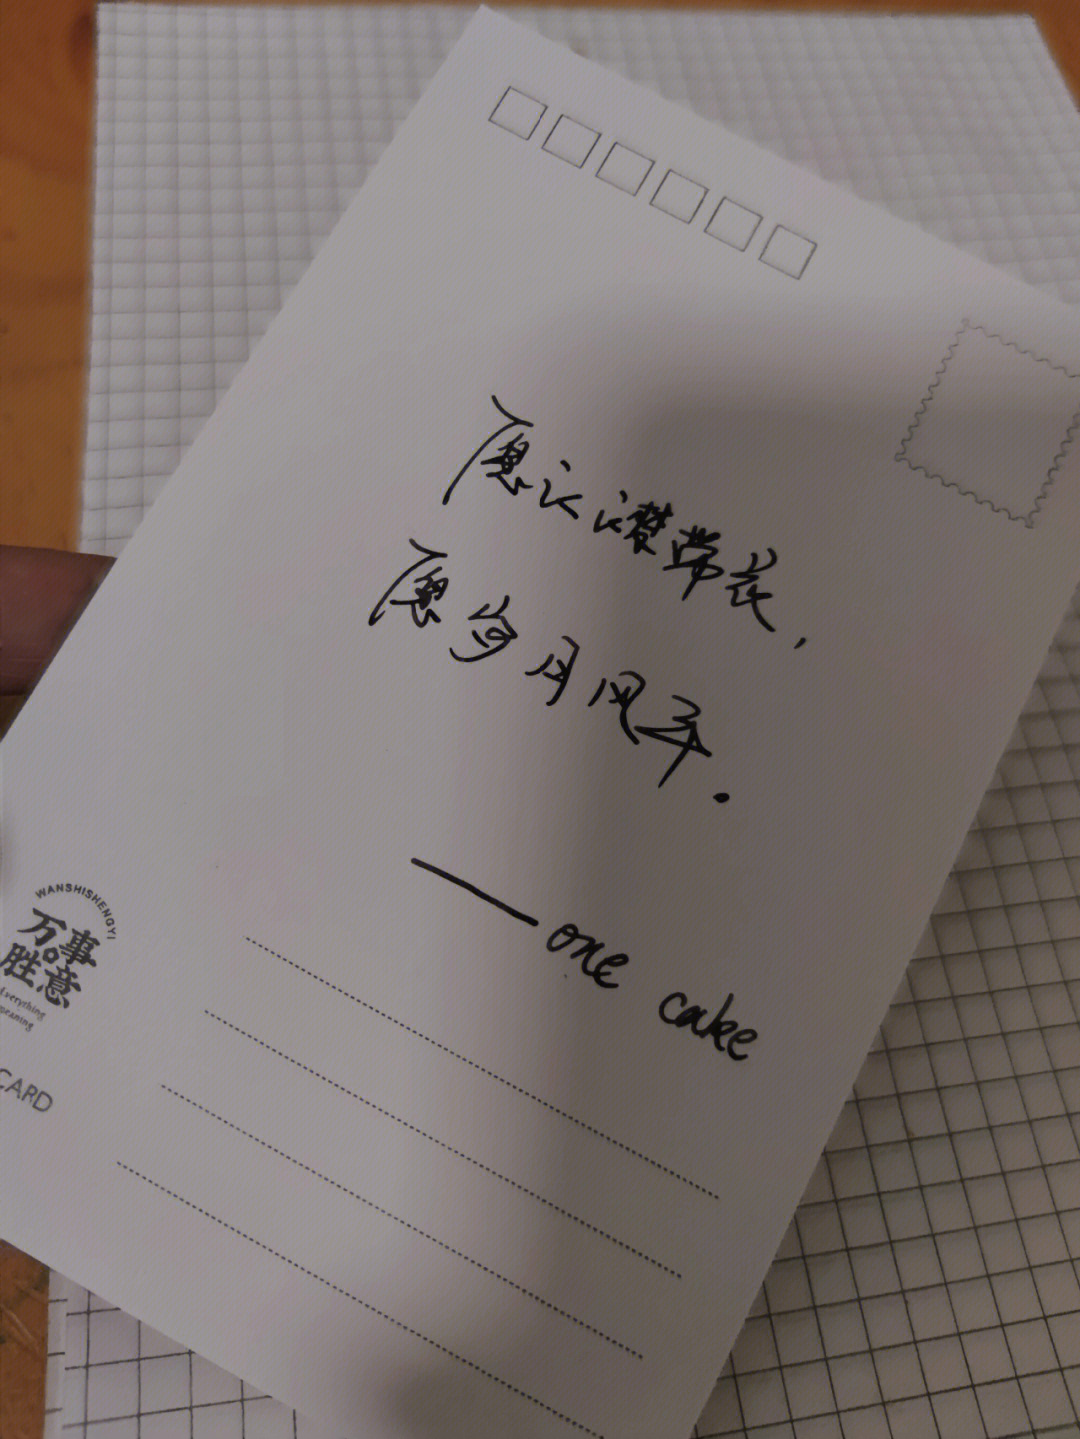 愿 常 ,
愿岁月风平.
——one cake
WANSHISHENGYI
万事
胜意
Everything
meaning
CARD